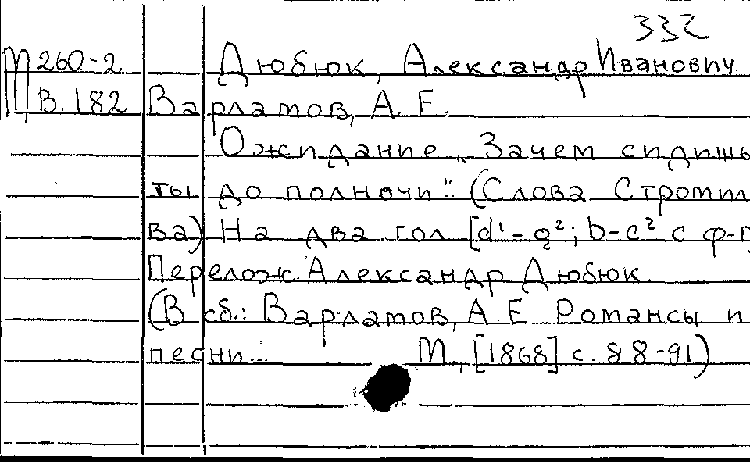 332
М 260-2 Дюбюк, Александр Иванович
В. 182 Варламов, А. Е.
Ожидание „Зачем сидишь
ты до полночи". (Слова Стромил
ва) На два гол [d¹-g²; b-c² с ф-п
Перелож. Александр Дюбюк.
(В сб.: Варламов, А. Е. Романсы и
песни... М., [1868] с. 88-91)